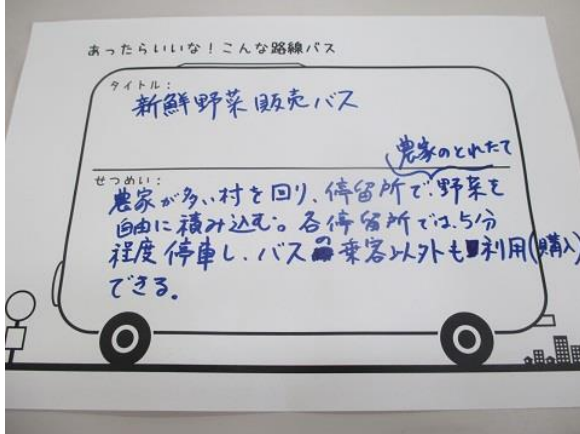 あったらいいな！こんな路線バス
タイトル：
新鮮野菜販売バス
せつめい：
農家のとれたて
農家が多い村を回り、停留所で、野菜を
自由に積み込む。各停留所では、5分
程度停車し、バスの乗客以外も利用(購入)
できる。